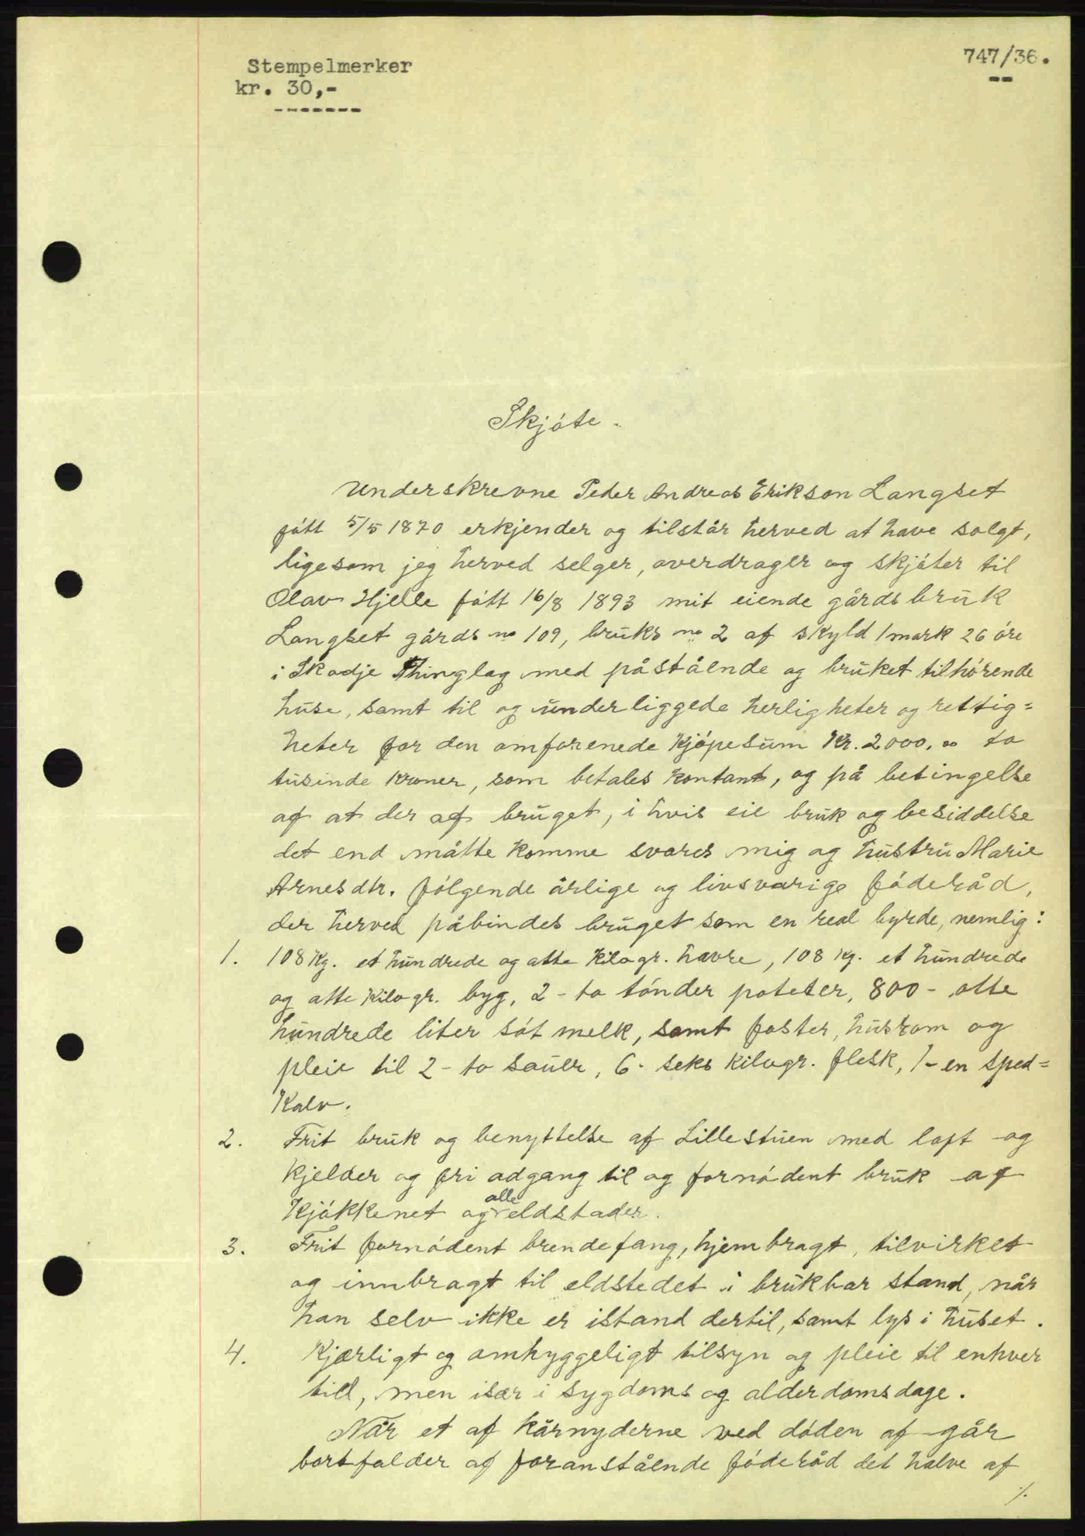 Stempelmerker
kr. 30,-
-------
747/36.
--
Skjóte.
Underskrevne Peder Andreas Erikson Langset
fótt 5/5 1870 erkjender og tilstår herved at have solgt,
ligesom jeg herved selger, overdrager og skjóter til
Olav Hjelle fótt 16/8 1893 mit eiende gårdsbruk
Langset gårds no 109, bruks no 2 af skyld 1 mark 26 óre
i Skodje Thinglag med påståĺnde og bruket tilhórende
huse, samt til og underliggede herligheter og rettig=
heter for den omforenede kjópesum Kr. 2000.00 to
tusinde kroner, som betales kontant, og på betingelse
af at der af bruget, i hvis eie bruk og besiddelse
det end måtte komme svares mig og hustru Marie
Arnesdtr. fólgende årlige og livsvarige fóderåd,
der herved påbindes bruget som en real byrde, nemlig:
1. 108 kg. et hundrede og atte kilogr. havre, 108 kg. et hundrede
og atte kilogr. byg, 2 - to tónder poteter, 800 - otte
hundrede liter sót melk, samt foster, husrom og
pleie til 2 - to sauer, 6 - seks kilogr. flesk, 1 - en sped=
kalv.
2. Frit bruk og benyttelse af Lillestuen med loft og
kjelder og fri adgang til og fornódent bruk af
kjókkenet og alle eldstader.
3. Frit fornódent brendefang, hjembragt, tilvirket
og innbragt til eldstedet i brukbar stand, når
han selv ikke er istand dertil, samt lys i huset.
4. Kjærligt og omhyggeligt tilsyn og pleie til enhver
tid, men især i sygdoms og alderdomsdage.
Når et af kårnyderne ved dóden af går
bortfalder af foranstående fóderåd det halve af
./.